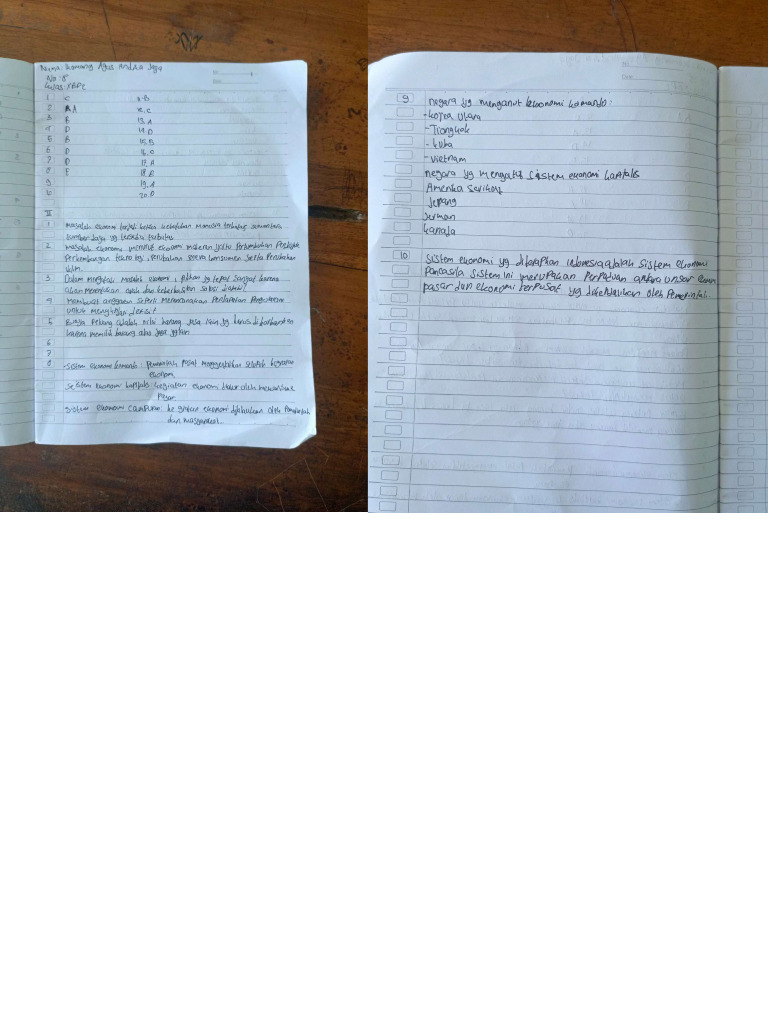 Nama: Komang Agus Andika Jaya
No : 8
Kelas: XBP2
1 C 11. B
2 A 12. C
3 B 13. A
4 D 14. D
5 B 15. B
6 D 16. C
7 D 17. A
8 E 18. E
9 19. A
10 20. D
II
1 masalah ekonomi terjadi ketika kebutuhan manusia terbatas sementara
sumber daya yg tersedia terbatas
2 masalah ekonomi menurut ekonomi makeren yaitu Pertumbuhan Penduduk
Perkembangan teknologi, perubahan selera konsumen serta Perubahan
iklim.
3 Dalam masalah ekonomi, Pilihan yg tepat sangat karena
akan menentukan arah dan keberhasilan solusi
4 membuat anggaran seperti merencanakan Pendapatan Pengeluaran
untuk menghindari defisit
5 Biaya Peluang adalah nilai barang jasa lain yg harus dikorbankan
karena memilih barang atau jasa
6
7
8 -sistem ekonomi komando : pemerintah pusat menggerakkan seluruh kegiatan
ekonomi.
sistem ekonomi kapitalis : kegiatan ekonomi diatur oleh mekanisme
Pasar
sistem ekonomi campuran : kegiatan ekonomi dilakukan oleh Pemerintah
dan masyarakat.
9 negara yg menganut ekonomi komando :
-korea utara
-Tiongkok
- kuba
-vietnam
negara yg menganut sistem ekonomi kapitalis
Amerika Serikat
Jepang
Jerman
kanada
10 Sistem ekonomi yg diterapkan indonesia adalah sistem ekonomi
pancasila sistem ini merupakan perpaduan antara unsur ekonomi
pasar dan ekonomi terpusat yg dikendalikan oleh Pemerintah.